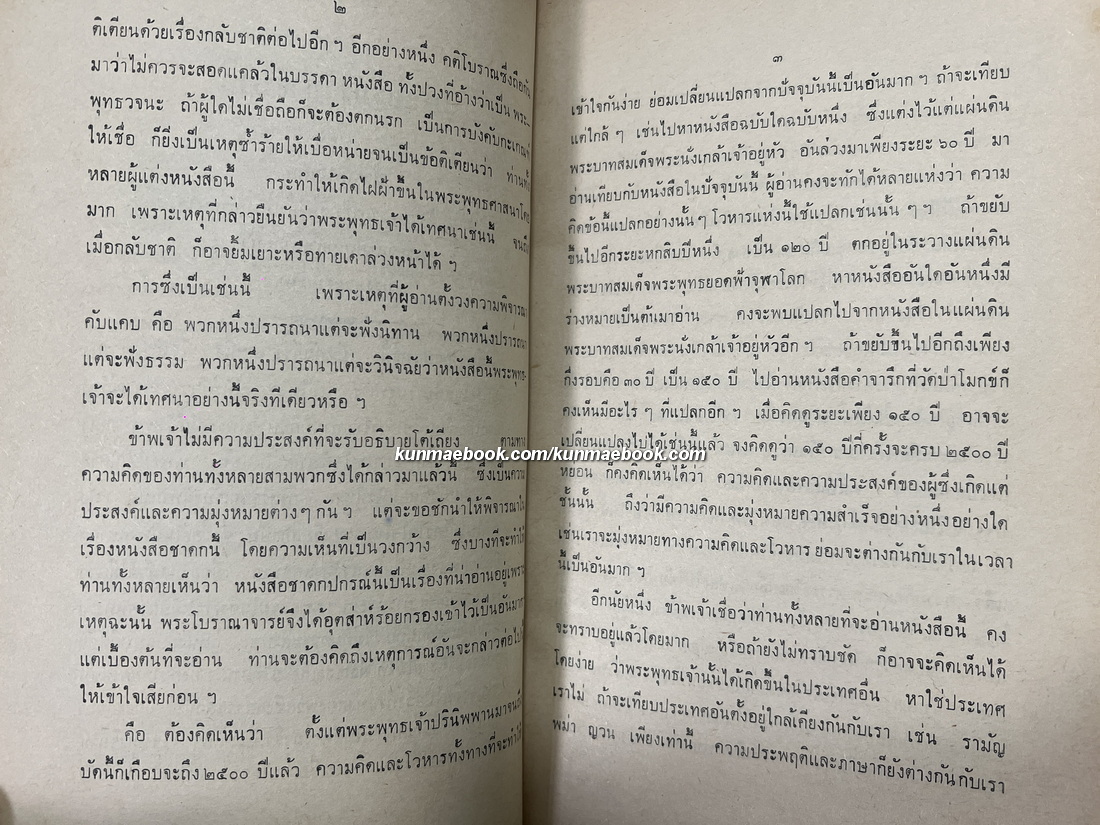 ๒
ติเตียนด้วยเรื่องกลับชาติต่อไปอีก ฯ อีกอย่างหนึ่ง คติโบราณซึ่งถือกัน
มาว่าไม่ควรจะสอดแคล้วในบรรดา หนังสือ ทั้งปวงที่อ้างว่าเป็น พระ-
พุทธวจนะ ถ้าผู้ใดไม่เชื่อถือก็จะต้องตกนรก เป็นการบังคับกะเกณฑ์
ให้เชื่อ ก็ยิ่งเป็นเหตุซ้ำร้ายให้เบื่อหน่ายจนเป็นข้อติเตียนว่า ท่านทั้ง
หลายผู้แต่งหนังสือนี้ กระทำให้เกิดไฝฝ้าขึ้นในพระพุทธศาสนาโดย
มาก เพราะเหตุที่กล่าวยืนยันว่าพระพุทธเจ้าได้เทศนาเช่นนี้ จนถึง
เมื่อกลับชาติ ก็อาจยิ้มเยาะหรือทายเดาล่วงหน้าได้ ฯ
การซึ่งเป็นเช่นนี้ เพราะเหตุที่ผู้อ่านตั้งวงความพิจารณา
คับแคบ คือ พวกหนึ่งปรารถนาแต่จะฟังนิทาน พวกหนึ่งปรารถนา
แต่จะฟังธรรม พวกหนึ่งปรารถนาแต่จะวินิจฉัยว่าหนังสือนี้พระพุทธ-
เจ้าจะได้เทศนาอย่างนี้จริงทีเดียวหรือ ฯ
ข้าพเจ้าไม่มีความประสงค์ที่จะรับอธิบายโต้เถียง ตามทาง
ความคิดของท่านทั้งหลายสามพวกซึ่งได้กล่าวมาแล้วนี้ ซึ่งเป็นความ
ประสงค์และความมุ่งหมายต่าง ๆ กัน ฯ แต่จะขอชักนำให้พิจารณาใน
เรื่องหนังสือชาดกนี้ โดยความเห็นที่เป็นวงกว้าง ซึ่งบางทีจะทำให้
ท่านทั้งหลายเห็นว่า หนังสือชาดกปกรณ์นี้เป็นเรื่องที่น่าอ่านอยู่เพราะ
เหตุฉะนั้น พระโบราณาจารย์จึงได้อุตส่าห์ร้อยกรองเข้าไว้เป็นอันมาก
แต่เบื้องต้นที่จะอ่าน ท่านจะต้องคิดถึงเหตุการณ์อันจะกล่าวต่อไปนี้
ให้เข้าใจเสียก่อน ฯ
คือ ต้องคิดเห็นว่า ตั้งแต่พระพุทธเจ้าปรินิพพานมาจนถึง
บัดนี้ก็เกือบจะถึง ๒๕๐๐ ปีแล้ว ความคิดและโวหารทั้งทางที่จะทำให้
๓
เข้าใจกันง่าย ย่อมเปลี่ยนแปลกจากปัจจุบันนี้เป็นอันมาก ฯ ถ้าจะเทียบ
แต่ใกล้ ๆ เช่นไปหาหนังสือฉบับใดฉบับหนึ่ง ซึ่งแต่งไว้แต่แผ่นดิน
พระบาทสมเด็จพระนั่งเกล้าเจ้าอยู่หัว อันล่วงมาเพียงระยะ ๖๐ ปี มา
อ่านเทียบกับหนังสือในปัจจุบันนี้ ผู้อ่านคงจะทักได้หลายแห่งว่า ความ
คิดข้อนี้แปลกอย่างนั้น ๆ โวหารแห่งนี้ใช้แปลกเช่นนั้น ๆ ฯ ถ้าขยับ
ขึ้นไปอีกระยะหกสิบปีหนึ่ง เป็น ๑๒๐ ปี ตกอยู่ในระวางแผ่นดิน
พระบาทสมเด็จพระพุทธยอดฟ้าจุฬาโลก หาหนังสืออันใดอันหนึ่งมี
ร่างหมายเป็นต้นมาอ่าน คงจะพบแปลกไปจากหนังสือในแผ่นดิน
พระบาทสมเด็จพระนั่งเกล้าเจ้าอยู่หัวอีก ฯ ถ้าขยับขึ้นไปอีกถึงเพียง
กึ่งรอบคือ ๓๐ ปี เป็น ๑๕๐ ปี ไปอ่านหนังสือคำจารึกที่วัดป่าโมกข์ก็
คงเห็นมีอะไร ๆ ที่แปลกอีก ฯ เมื่อคิดดูระยะเพียง ๑๕๐ ปี อาจจะ
เปลี่ยนแปลงไปได้เช่นนี้แล้ว จงคิดดูว่า ๑๕๐ ปีกี่ครั้งจะครบ ๒๕๐๐ ปี
หย่อน ก็คงคิดเห็นได้ว่า ความคิดและความประสงค์ของผู้ซึ่งเกิดแต่
ชั้นนั้น ถึงว่ามีความคิดและมุ่งหมายความสำเร็จอย่างหนึ่งอย่างใด
เช่นเราจะมุ่งหมายทางความคิดและโวหาร ย่อมจะต่างกันกับเราในเวลา
นี้เป็นอันมาก ฯ
อีกนัยหนึ่ง ข้าพเจ้าเชื่อว่าท่านทั้งหลายที่จะอ่านหนังสือนี้ คง
จะทราบอยู่แล้วโดยมาก หรือถ้ายังไม่ทราบชัด ก็อาจจะคิดเห็นได้
โดยง่าย ว่าพระพุทธเจ้านั้นได้เกิดขึ้นในประเทศอื่น หาใช่ประเทศ
เราไม่ ถ้าจะเทียบประเทศอันตั้งอยู่ใกล้เคียงกันกับเรา เช่น รามัญ
พม่า ญวน เพียงเท่านี้ ความประพฤติและภาษาก็ยังต่างกันกับเรา
kunmaebook.com/kunmaebook.com